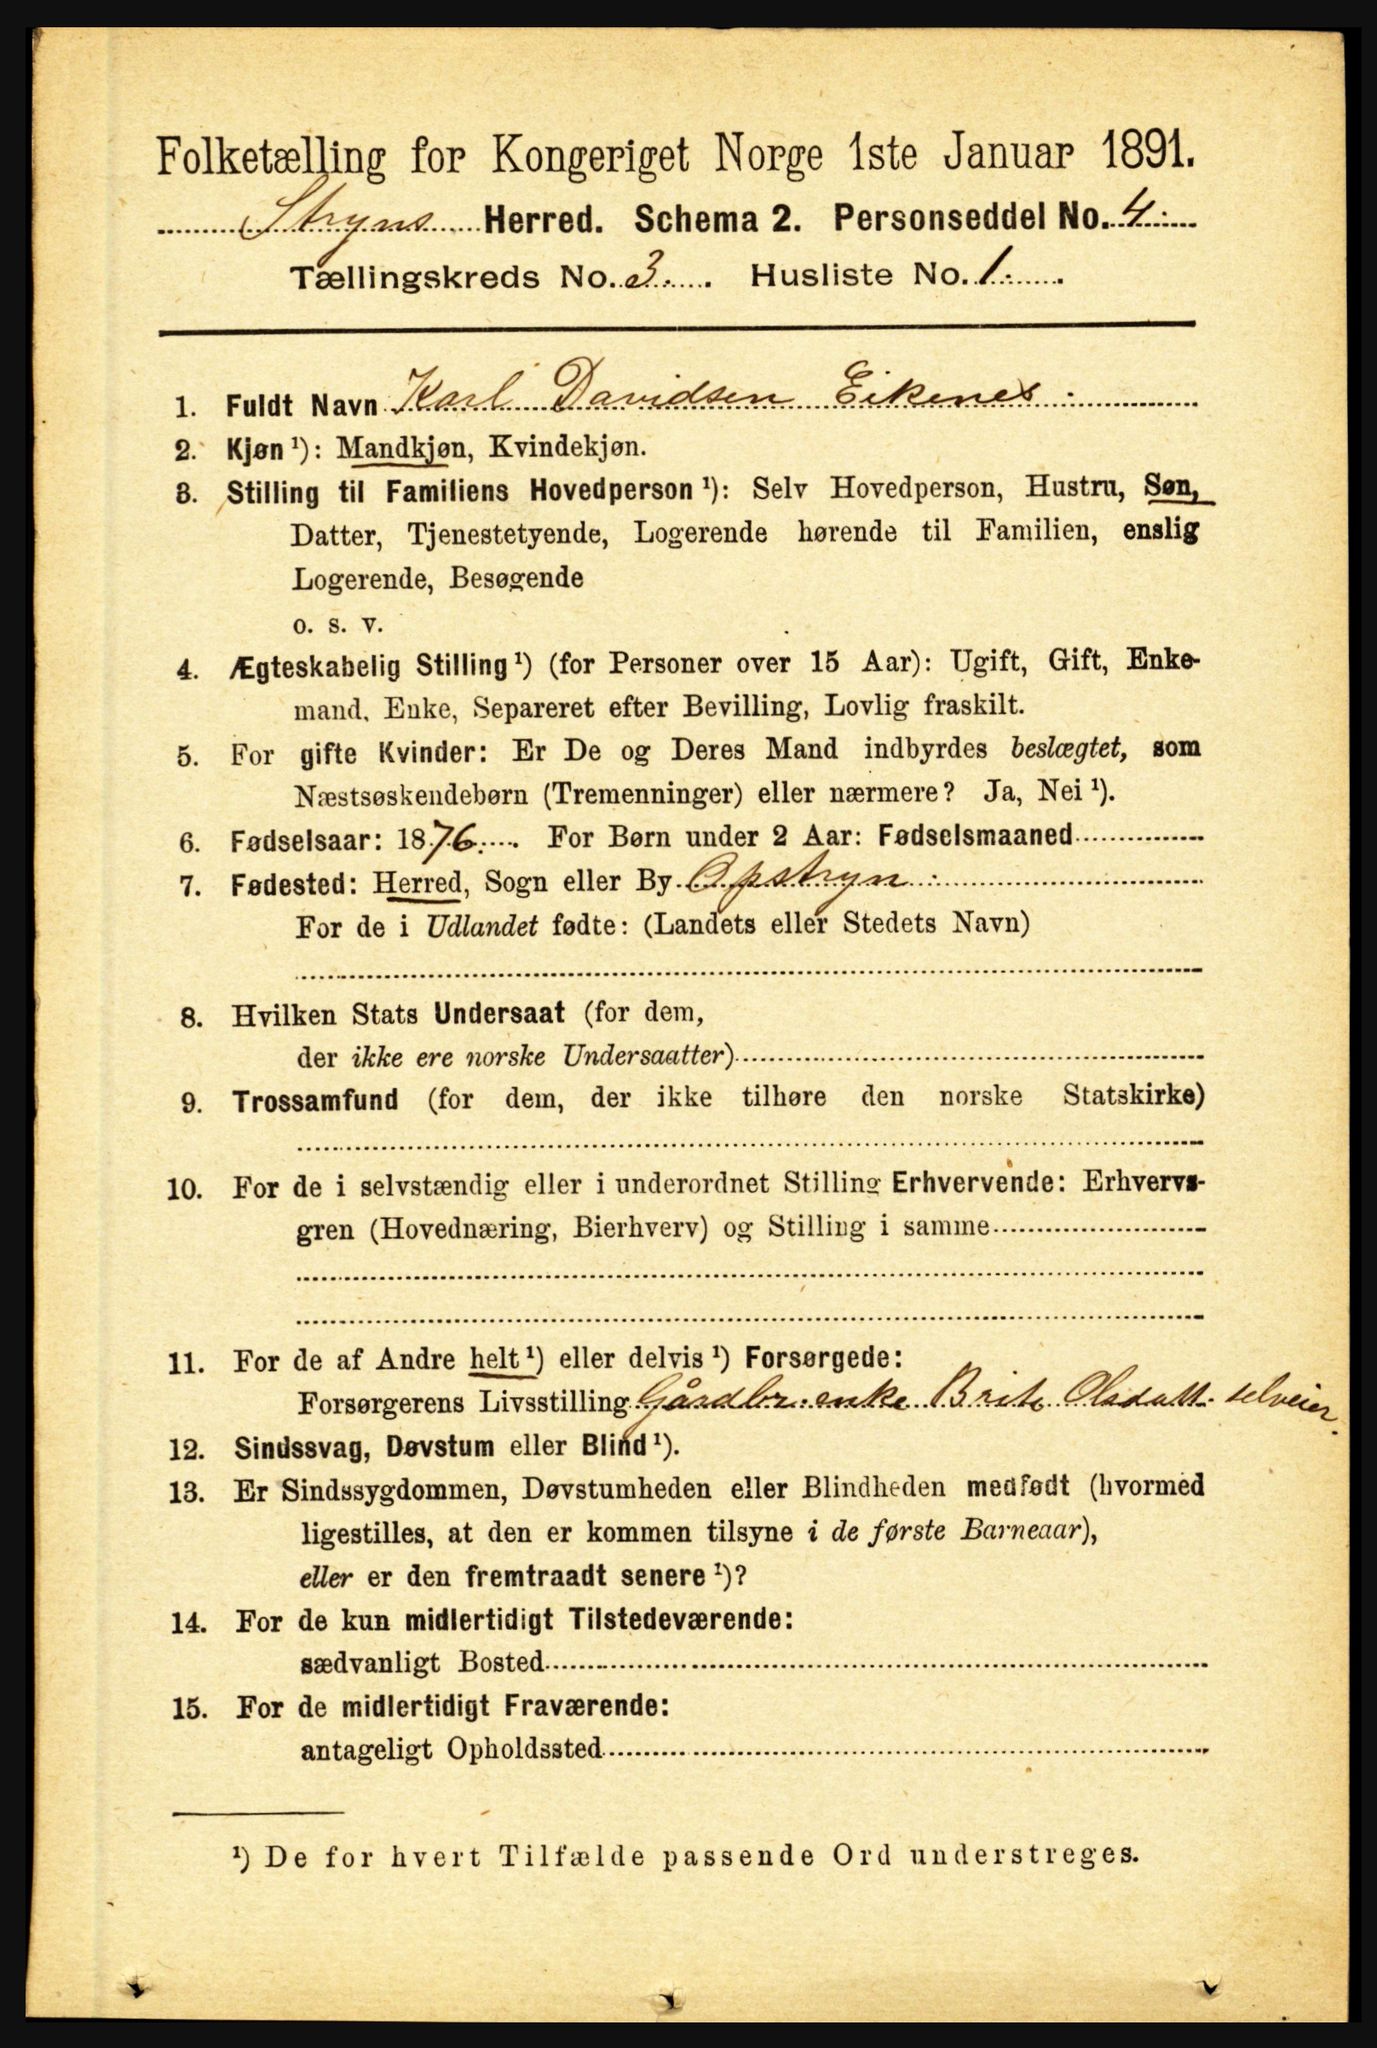 Folketælling for Kongeriget Norge 1ste Januar 1891.
Stryns Herred. Schema 2. Personseddel No. 4.
Tællingskreds No. 3. Husliste No. 1.
1. Fuldt Navn Karl Davidsen Eikenes
2. Kjøn ¹): Mandkjøn, Kvindekjøn.
3. Stilling til Familiens Hovedperson ¹): Selv Hovedperson, Hustru, Søn,
Datter, Tjenestetyende, Logerende hørende til Familien, enslig
Logerende, Besøgende
o. s. v.
4. Ægteskabelig Stilling ¹) (for Personer over 15 Aar): Ugift, Gift, Enke-
mand, Enke, Separeret efter Bevilling, Lovlig fraskilt.
5. For gifte Kvinder: Er De og Deres Mand indbyrdes beslægtet, som
Næstsøskendebørn (Tremenninger) eller nærmere? Ja, Nei ¹).
6. Fødselsaar: 1876. For Børn under 2 Aar: Fødselsmaaned
7. Fødested: Herred, Sogn eller By Opstryn
For de i Udlandet fødte: (Landets eller Stedets Navn)
8. Hvilken Stats Undersaat (for dem,
der ikke ere norske Undersaatter)
9. Trossamfund (for dem, der ikke tilhøre den norske Statskirke)
10. For de i selvstændig eller i underordnet Stilling Erhvervende: Erhvervs-
gren (Hovednæring, Bierhverv) og Stilling i samme
11. For de af Andre helt ¹) eller delvis ¹) Forsørgede:
Forsørgerens Livsstilling Gårdbr. enke Brite Olsdatt. selveier.
12. Sindssvag, Døvstum eller Blind ¹).
13. Er Sindssygdommen, Døvstumheden eller Blindheden medfødt (hvormed
ligestilles, at den er kommen tilsyne i de første Barneaar),
eller er den fremtraadt senere ¹)?
14. For de kun midlertidigt Tilstedeværende:
sædvanligt Bosted
15. For de midlertidigt Fraværende:
antageligt Opholdssted
¹) De for hvert Tilfælde passende Ord understreges.